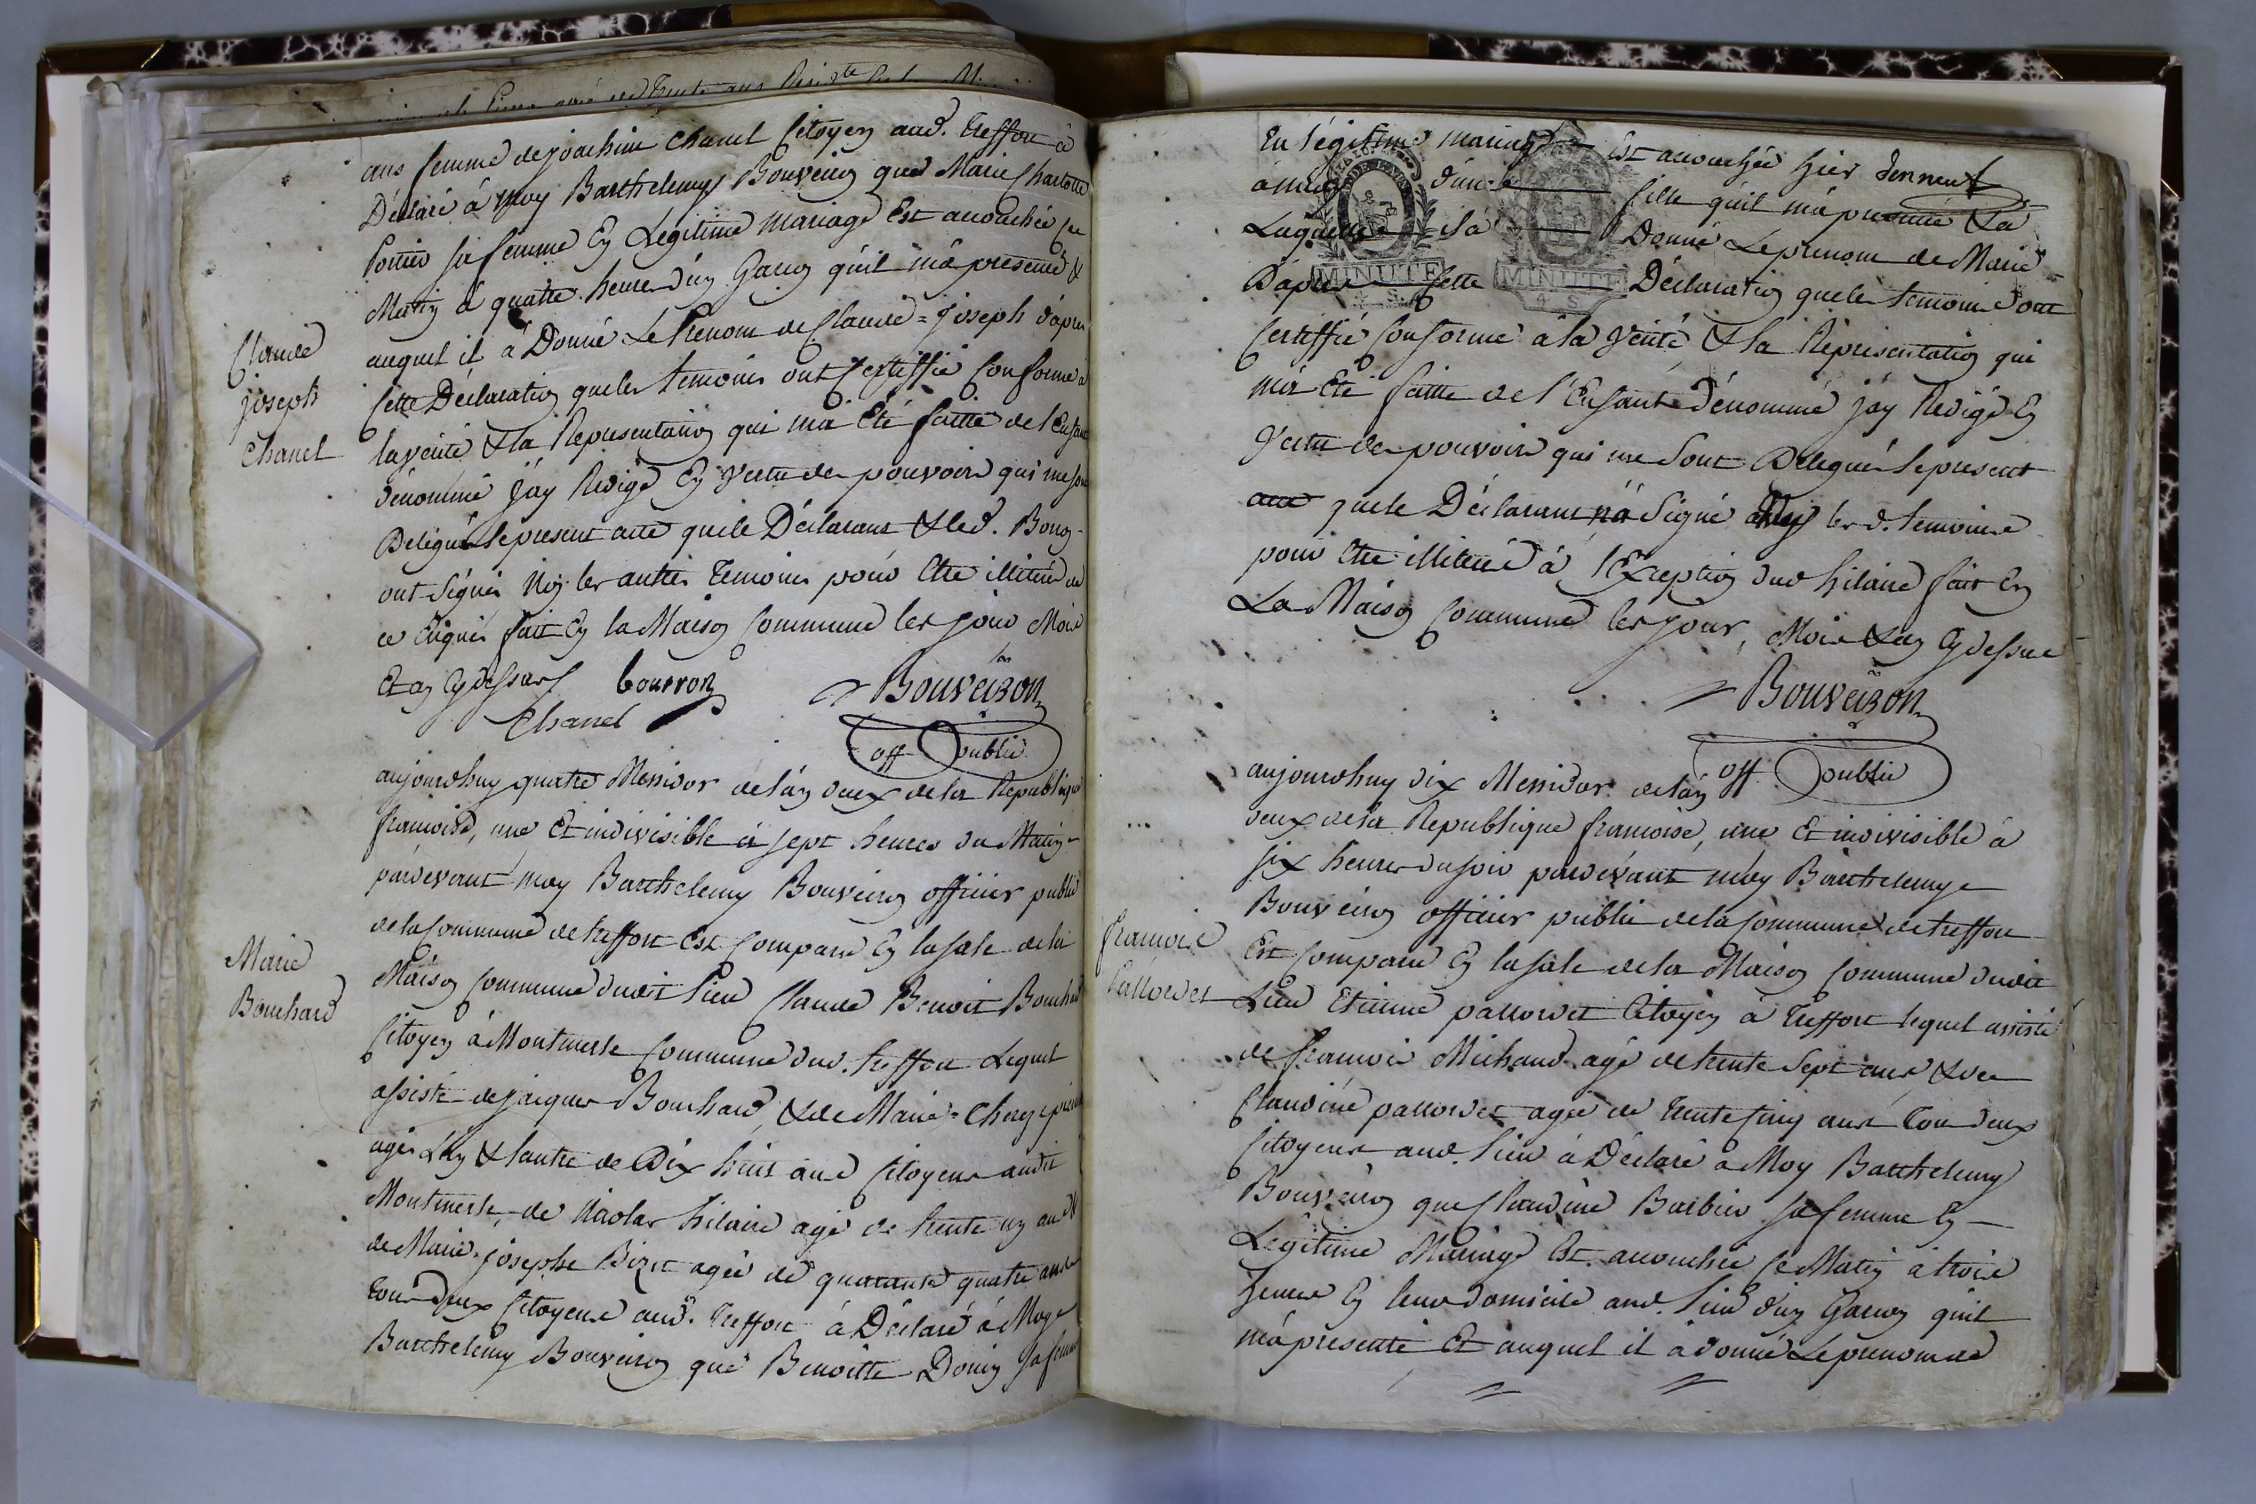 ans femme de joachim chanel Citoyen aud. Treffort à
Déclaré à Moy Barthelemy Bouveiron que Marie Charlotte
sa femme En Legitime mariage Est accouchée ce
Matin à quatre heure d'un Garçon qu'il m'a presenté &
auquel il à Donné Le Prenom de Claude = Joseph d'après
Cette Déclaration que les temoins ont Certiffié Conforme à
la verité & la Representation qui m'a Eté faitte de l'Enfant
dénommé j'ay Redigé En vertu des pouvoirs qui me sont
Delegués le present acte que le Déclarant & led.
ont signés Non les autres Temoins pour Etre illiteré de
ce Enquis fait En la Maison Commune les jour Mois
Et an Cydessus bourron Bouveiron
Chanel off public
Claude
joseph
Chanel
aujourdhuy quatre Messidor de l'an deux de la Republique
francoise, une Et indivisible à sept heures du Matin
pardevant moy Barthelemy Bouveiron officier public
de la Commune de treffort Est Comparu En la sale de la
Maison Commune dudit Lieu Claude Benoit Bouchard
Citoyen à Montmerle Commune dud. treffort Lequel
assisté de jacques Bouchard, & de Marie =
agés L'un & l'autre de Dix huit ans Citoyens audit
Montmerle, de Nicolas hilaire agé de trente un ans &
de Marie = josephe Bizet agée de quarante quatre ans
tous deux Citoyens aud. Treffort à Déclaré à Moy
Barthelemy Bouveiron que Benoitte Donin sa femme
Marie
Bouchard
En légitime mariage Est accouchée hier
d'une fille qu'il m'a presenté & à
Laquelle il à Donné Le prenom de Marie
D'après Cette Déclaration que les temoins ont
MINUTE
MINUTE
4 S.
Certiffié Conforme à la verité & la Representation qui
m'à Eté faitte de l'Enfant dénommé j'ay Redigé En
vertu des pouvoirs qui me sont Delegués le present
acte que le Déclarant n'a signé les d. temoins
pour Etre illiteré à l'Exception dud hilaire fait En
La Maison Commune les jour, Mois & an Cydessus
Bouveiron
off public
aujourdhuy dix Messidor de l'an
deux de la Republique francoise, une Et indivisible à
six heures du soir pardevant moy Barthelemy
Bouveiron officier public de la Commune de treffort
Est Comparu En la sale de la Maison Commune dudit
Lieu Etienne pallordet Citoyen à Treffort lequel assisté
de francois Michaud agé de trente sept ans & de
Claudine pallordet agée de trente cinq ans tou deux
Citoyens aud. Lieu à Déclaré à Moy Barthelemy
Bouveiron que Claudine Barbier sa femme En
Legitime Mariage Est accouchée ce Matin à trois
heures En leur domicile aud. Lieu d'un Garçon qu'il
m'a presenté Et auquel il a donné Le prenom de
francois
Pallordet